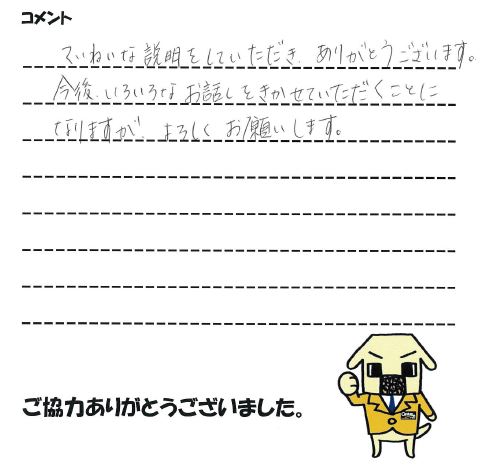 コメント
ていねいな説明をしていただき、ありがとうございます。
今後、いろいろなお話しをきかせていただくことに
なりますが、よろしくお願いします。
ご協力ありがとうございました。